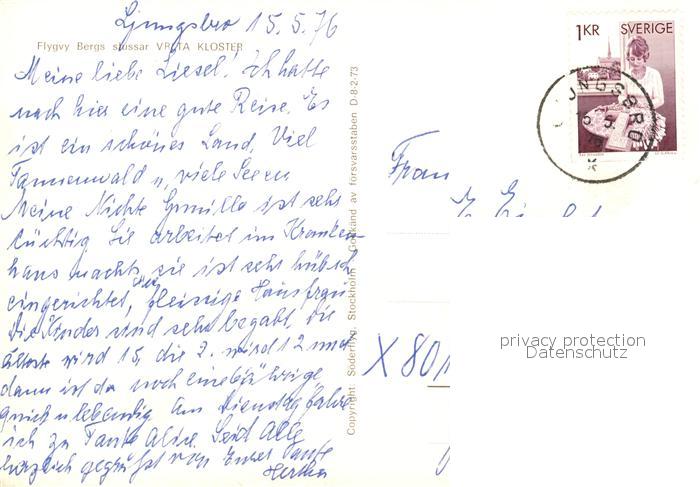 Ljungsbro 15.5.76
Flygvy Bergs slussar VRETA KLOSTER
Meine liebe Liesel! Ich hatte
nach hier eine gute Reise. Es
ist ein schönes Land. Viel
Tannenwald u. viele Seeen
Meine Nichte Gunilla ist sehr
tüchtig Sie arbeitet im Kranken-
haus nachts, sie ist sehr hübsch
eingerichtet, fleissige Hausfrau
Die Kinder sind sehr begabt, die
älteste wird 15, die 2. wird 12 und
dann ist da noch eine 6jährige
quick u lebendig Am Dienstag fahre
ich zu Tante Alice. Seid Alle
herzlich gegrüßt von Eurer Tante
Hertha
Copyright Söderflyg, Stockholm Godkänd av försvarsstaben D-8-2-73
1KR SVERIGE
LJUNGSBRO
Frau
X 80
privacy protection
Datenschutz